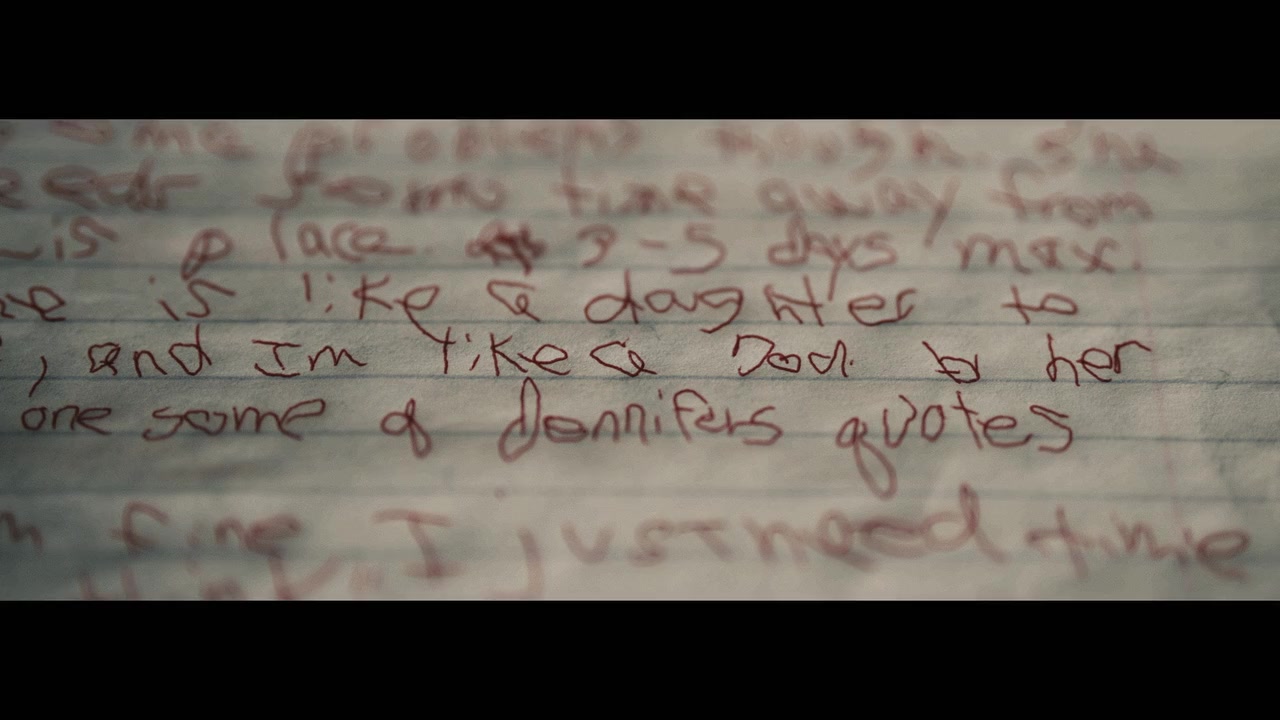 problems though. She
some time away from
is place 3-5 days max.
is like a daughter to
, and Im like a Dad to her
one some of Jennifers quotes
fine I just need time